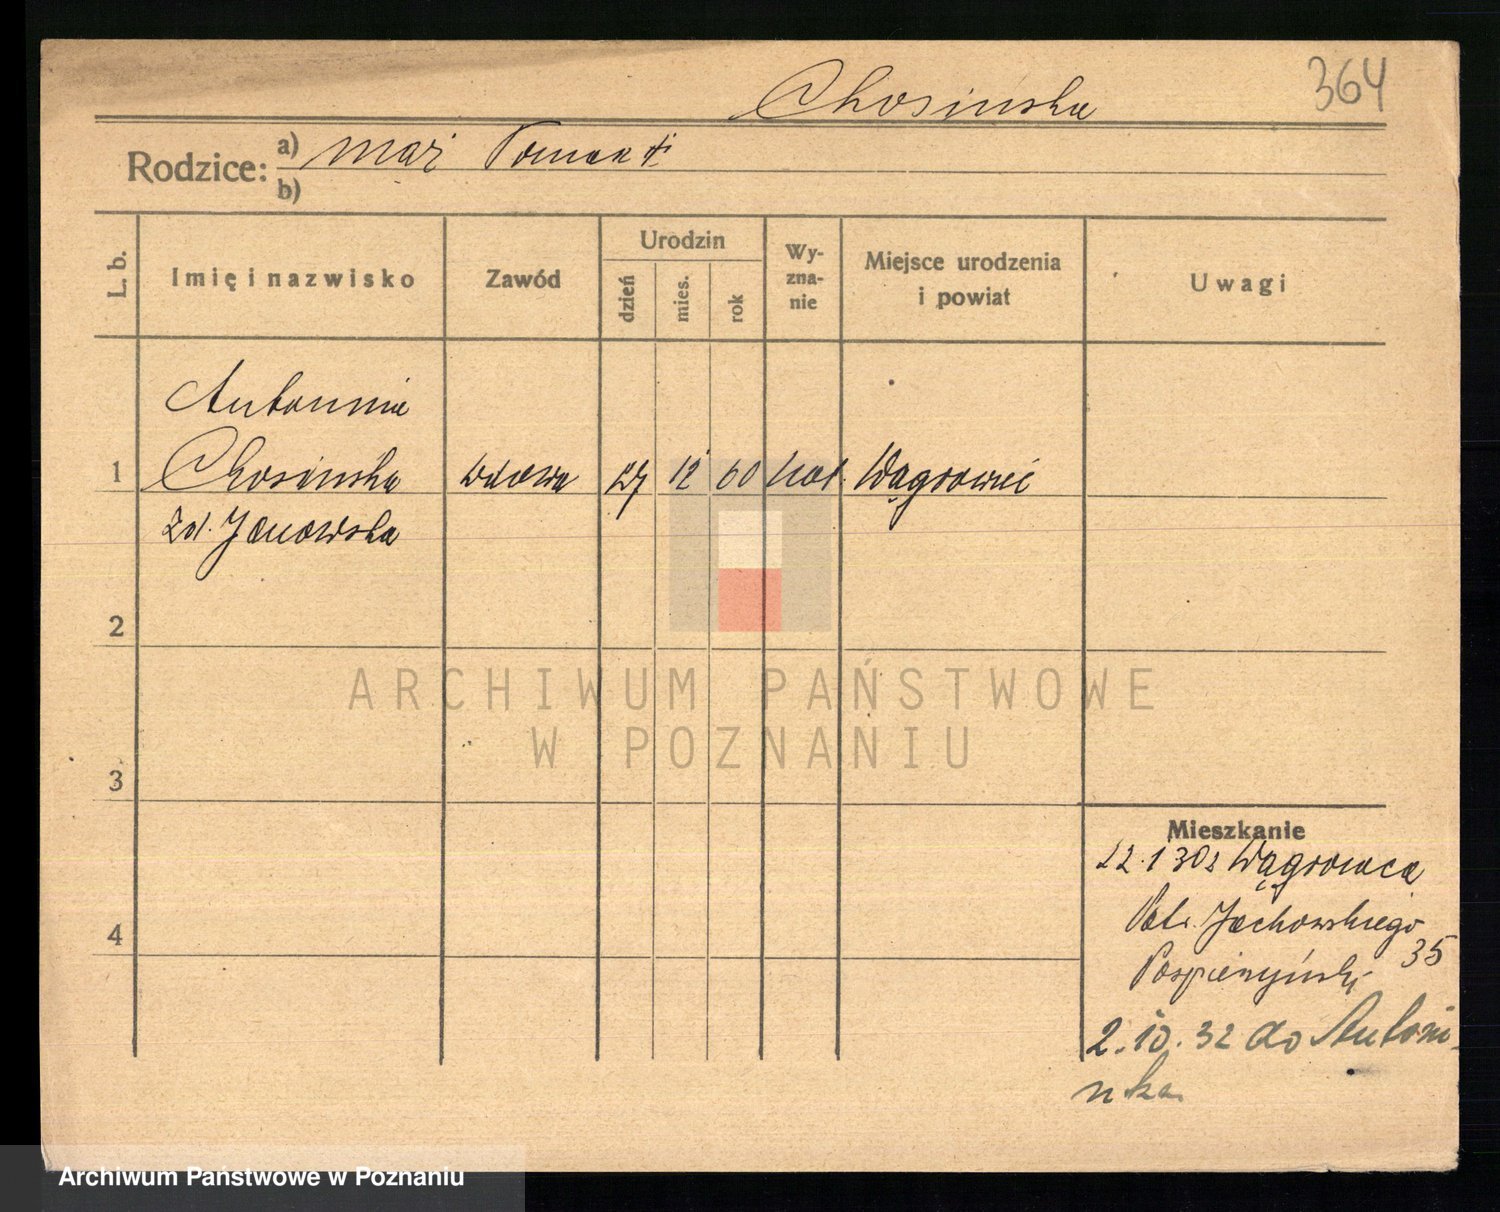 364
Chosinska
Rodzice: a) mąż Roman †
b)
L. b.
Imię i nazwisko
Zawód
Urodzin
dzień
mies.
rok
Wy-
zna-
nie
Miejsce urodzenia
i powiat
Uwagi
Antonina
1 Chosinska wdowa 27 12 60 kat. Wągrowiec
Janowska
2
3
4
Mieszkanie
22.1 30 z Wągrowca
Jackowskiego
35
2.10.32 do Antoni-
nka
ARCHIWUM PAŃSTWOWE
W POZNANIU
Archiwum Państwowe w Poznaniu